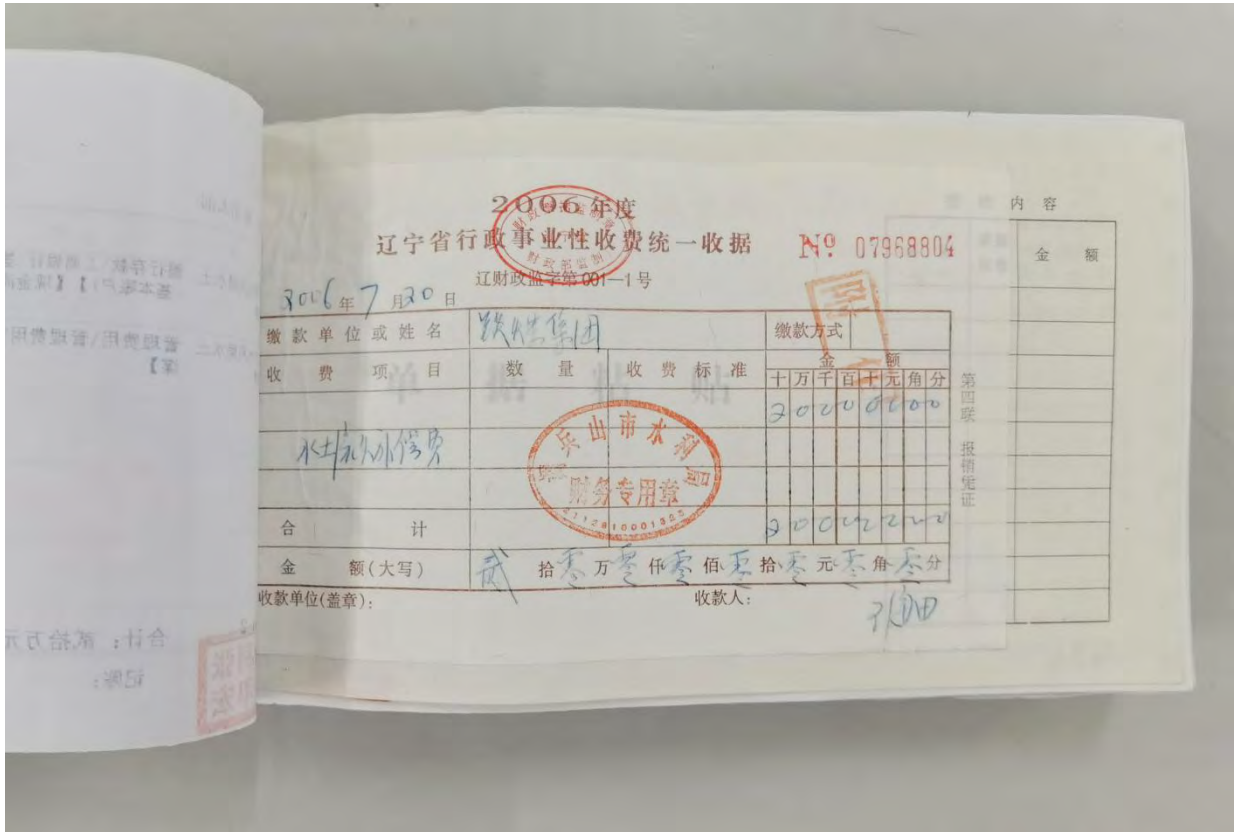 2006年度
辽宁省行政事业性收费统一收据 № 07968804
辽财政监字第001—1号
2006年7月20日
缴款单位或姓名 铁煤集团 缴款方式
收费项目 数量 收费标准 金额
十万千百十元角分
20000000
水土流失补偿费
合计 20000000
金额(大写) 贰拾零万零仟零佰零拾零元零角零分
收款单位(盖章): 收款人:
兵山市水利局
财务专用章
2112810001322
第四联 报销凭证
单据粘贴
内容
金额
合计:贰拾万元
记账: